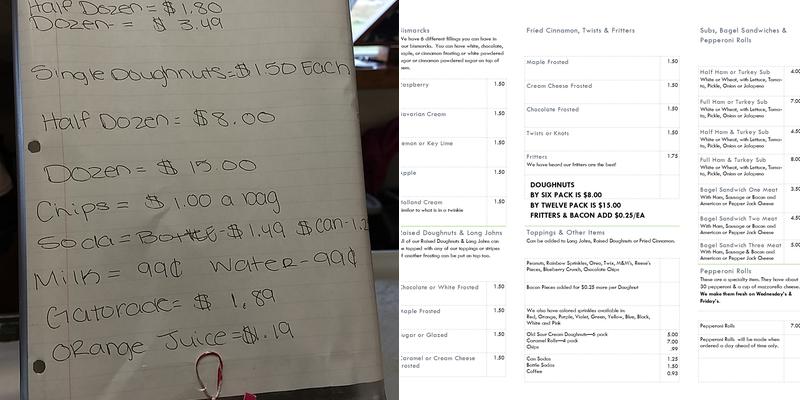 Half Dozen = $1.80
Dozen = $ 3.49
Single Doughnuts=$150 Each
Half Dozen = $8.00
Dozen = $ 15.00
Chips = $ 1.00 a bag
Soda=Bottle-$1.49 $can-1.2
Milk = 99¢ Water-99¢
Gatorade= $ 1.89
Orange Juice=$1.19
Bismarcks
We have 6 different fillings you can have in
our bismarks. You can have white, chocolate,
maple, or cinnamon frosting or powdered
sugar or cinnamon powdered sugar on top of
them.
Raspberry 1.50
Bavarian Cream 1.50
Lemon or Key Lime 1.50
Apple 1.50
Holland Cream 1.50
Similar to what is in a twinkie
Raised Doughnuts & Long Johns
All of our Raised Doughnuts & Long Johns can
be topped with any of our toppings or stripes
of another frosting can be put on top too.
Chocolate or White Frosted 1.50
Maple Frosted 1.50
Sugar or Glazed 1.50
Caramel or Cream Cheese 1.50
Frosted
Fried Cinnamon, Twists & Fritters
Maple Frosted 1.50
Cream Cheese Frosted 1.50
Chocolate Frosted 1.50
Twists or Knots 1.50
Fritters 1.75
We have heard our fritters are the best!
DOUGHNUTS
BY SIX PACK IS $8.00
BY TWELVE PACK IS $15.00
FRITTERS & BACON ADD $0.25/EA
Toppings & Other Items
Can be added to Long Johns, Raised Doughnuts or Fried Cinnamon.
Peanuts, Rainbow Sprinkles, Oreo, Twix, M&M's, Reese's
Pieces, Blueberry Crunch, Chocolate Chips
Bacon Pieces added for $0.25 more per Doughnut
We also have colored sprinkles available in:
Red, Orange, Purple, Violet, Green, Yellow, Blue, Black,
White and Pink
Old Sour Cream Doughnuts—6 pack 5.00
Caramel Rolls—4 pack 7.00
Chips .99
Can Sodas 1.25
Bottle Sodas 1.50
Coffee 0.93
Subs, Bagel Sandwiches &
Pepperoni Rolls
Half Ham or Turkey Sub 4.00
White or Wheat, with Lettuce, Toma-
to, Pickle, Onion or Jalapeno
Full Ham or Turkey Sub 7.00
White or Wheat, with Lettuce, Toma-
to, Pickle, Onion or Jalapeno
Half Ham & Turkey Sub 4.50
White or Wheat, with Lettuce, Toma-
to, Pickle, Onion or Jalapeno
Full Ham & Turkey Sub 8.00
White or Wheat, with Lettuce, Toma-
to, Pickle, Onion or Jalapeno
Bagel Sandwich One Meat 3.50
With Ham, Sausage or Bacon and
American or Pepper Jack Cheese
Bagel Sandwich Two Meat 4.50
With Ham, Sausage or Bacon and
American or Pepper Jack Cheese
Bagel Sandwich Three Meat 5.00
With Ham, Sausage or Bacon and
American or Pepper Jack Cheese
Pepperoni Rolls
These are a specialty item. They have about
30 pepperoni & a cup of mozzarella cheese.
We make them fresh on Wednesday's &
Friday's.
Pepperoni Rolls 7.00
Pepperoni Rolls will be made when
ordered a day ahead of time only.